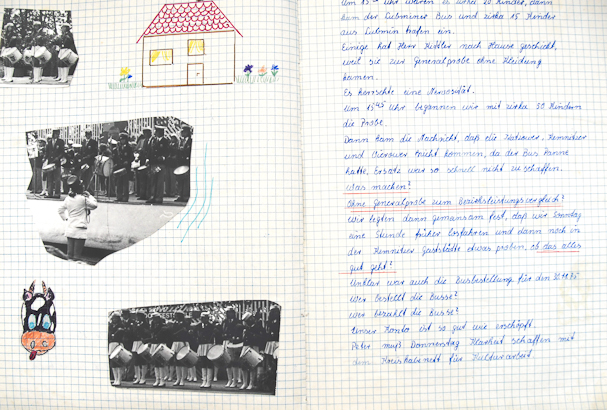 Um 15⁰⁰ Uhr waren es zirka 20 Kinder, dann
kam der Lubminer Bus und zirka 15 Kinder
aus Lubmin trafen ein.
Einige hat Herr nach Hause geschickt,
weil sie zur Generalprobe ohne Kleidung
kamen.
Es herrschte eine Nervosität.
Um 15⁴⁵ Uhr begannen wir mit zirka 50 Kindern
die Probe.
Dann kam die Nachricht, daß die Katzower, Kemnitzer
und Vierower nicht kommen, da der Bus Panne
hatte, Ersatz war so schnell nicht zu schaffen.
Was machen?
Ohne Generalprobe zum Bezirksleistungsvergleich?
Wir legten dann gemeinsam fest, daß wir Sonntag
eine Stunde früher losfahren und dann noch in
der Kemnitzer Gaststätte etwas proben, ob das alles
gut geht?
Unklar war auch die Busbestellung für den
Wer bestellt die Busse?
Wer bezahlt die Busse?
Unser Konto ist so gut wie erschöpft.
Peter muß Donnerstag Klarheit schaffen mit
dem Kreiskabinett für Kulturarbeit